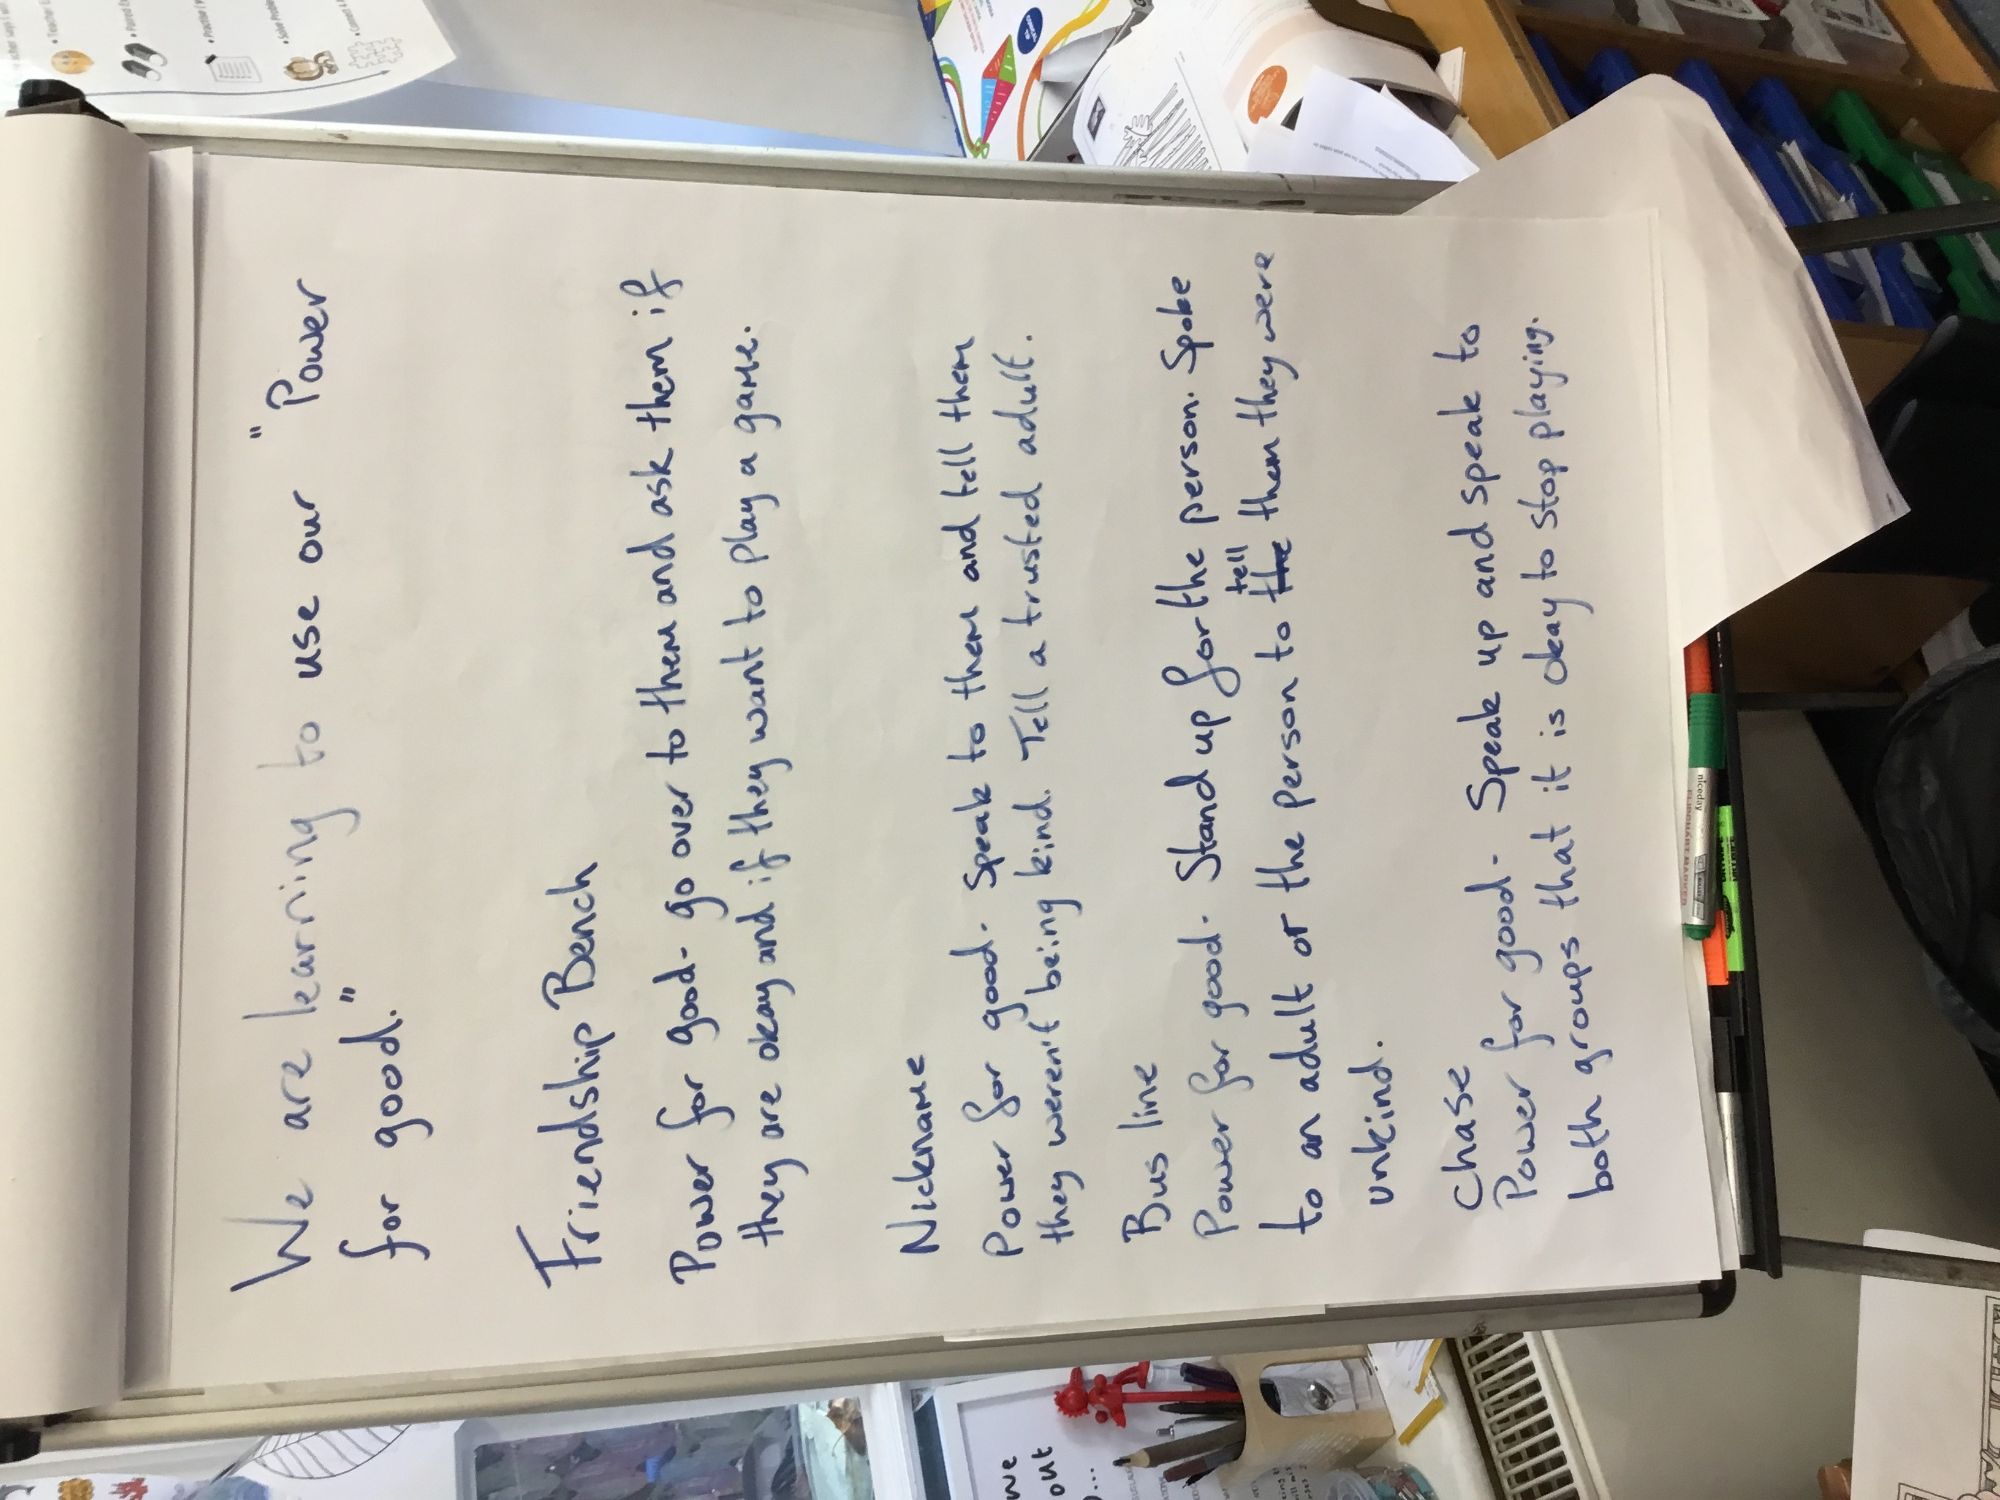 We are learning to use our "Power
for good."
Friendship Bench
Power for good - go over to them and ask them if
they are okay and if they want to play a game.
Nickname
Power for good - Speak to them and tell them
they weren't being kind. Tell a trusted adult.
Bus line
Power for good - Stand up for the person. Spoke
to an adult or the person to the tell them they were
unkind.
Chase
Power for good - Speak up and speak to
both groups that it is okay to stop playing.
niceday
FLIPCHART MARKER
we
out